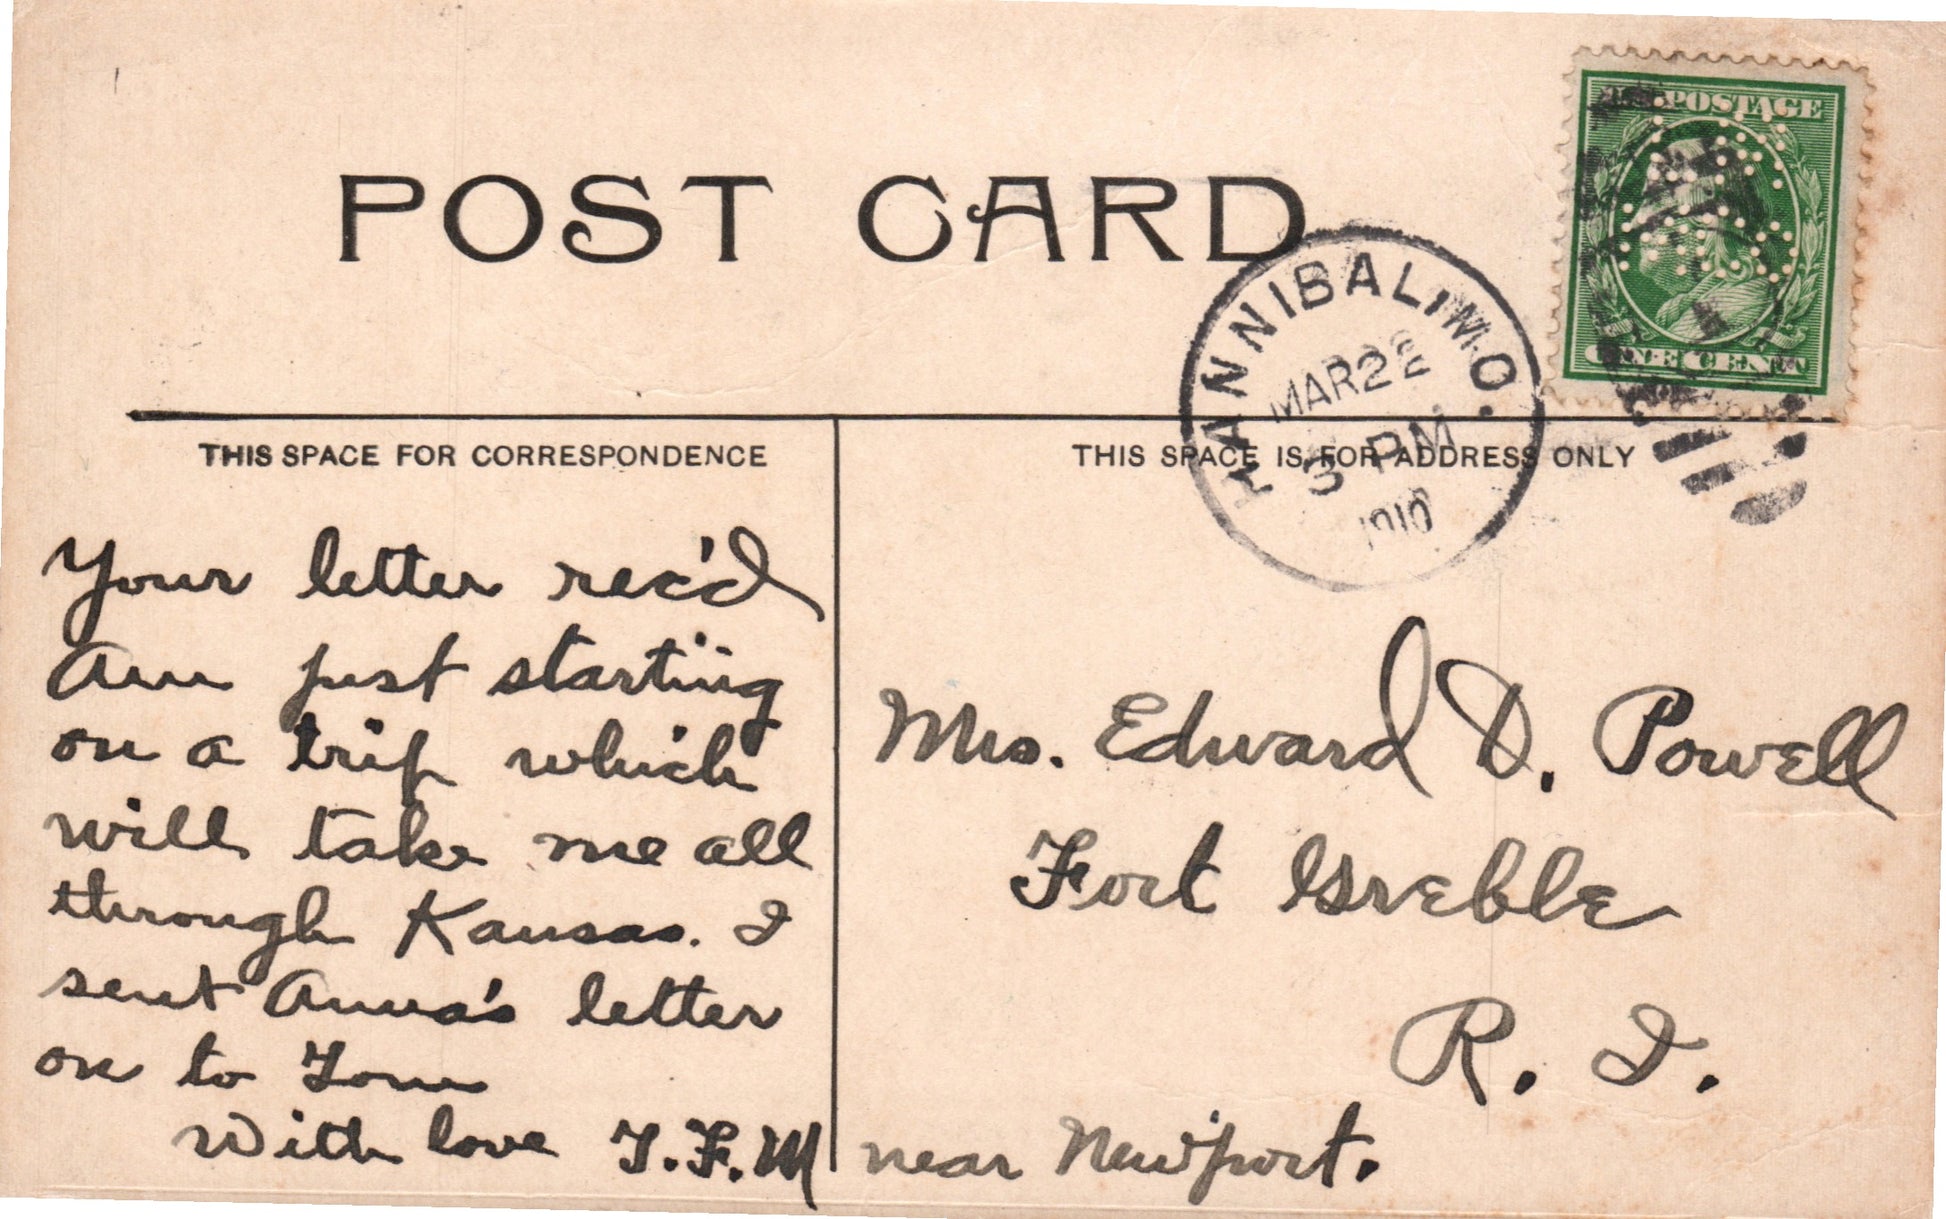 POST CARD
U.S. POSTAGE
ONE CENT
HANNIBAL, MO.
MAR 22
3 PM
1910
THIS SPACE FOR CORRESPONDENCE
THIS SPACE IS FOR ADDRESS ONLY
Your letter rec'd
Am just starting
on a trip which
will take me all
through Kansas. I
sent Anna's letter
on to Tom
With love T.F.M
Mrs. Edward D. Powell
Fort Greble
R. I.
near Newport.